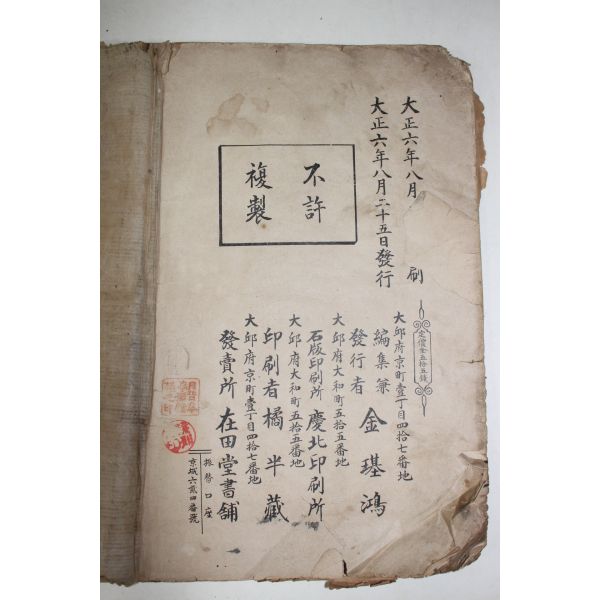 大正六年八月 刷
大正六年八月二十五日發行
不許
複製
定價金五拾五錢
大邱府京町壹丁目四拾七番地
編集兼
發行者 金璂鴻
大邱府大和町五拾五番地
石版印刷所 慶北印刷所
大邱府大和町五拾五番地
印刷者 橘半藏
大邱府京町壹丁目四拾七番地
發賣所 在田堂書舖
振替口座
京城六貳四番號